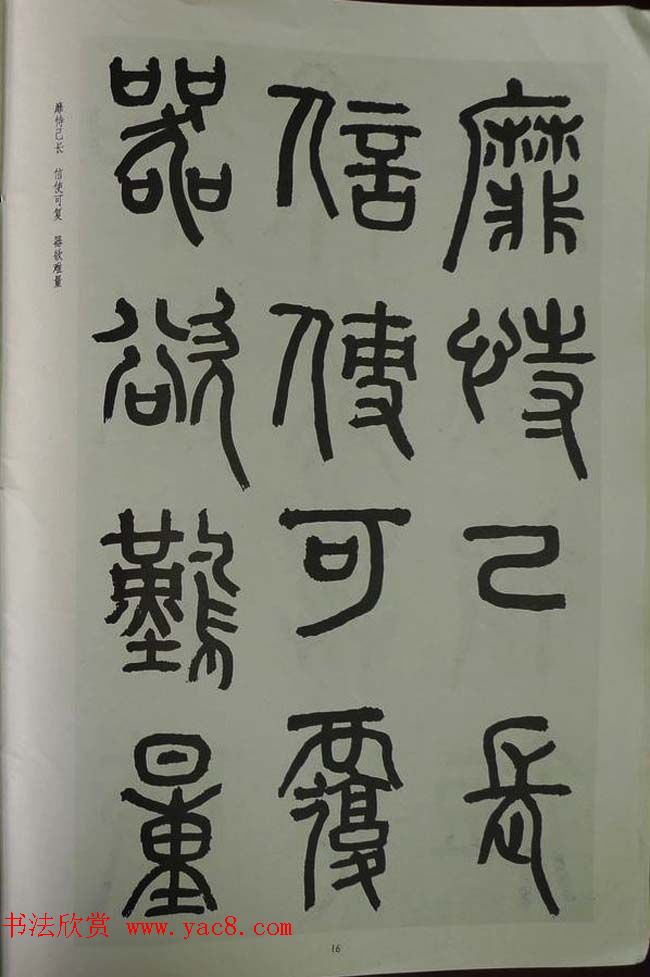 靡恃己長
信使可覆
器欲難量
靡恃己长 信使可复 器欲难量
书法欣赏 www.yac8.com
16